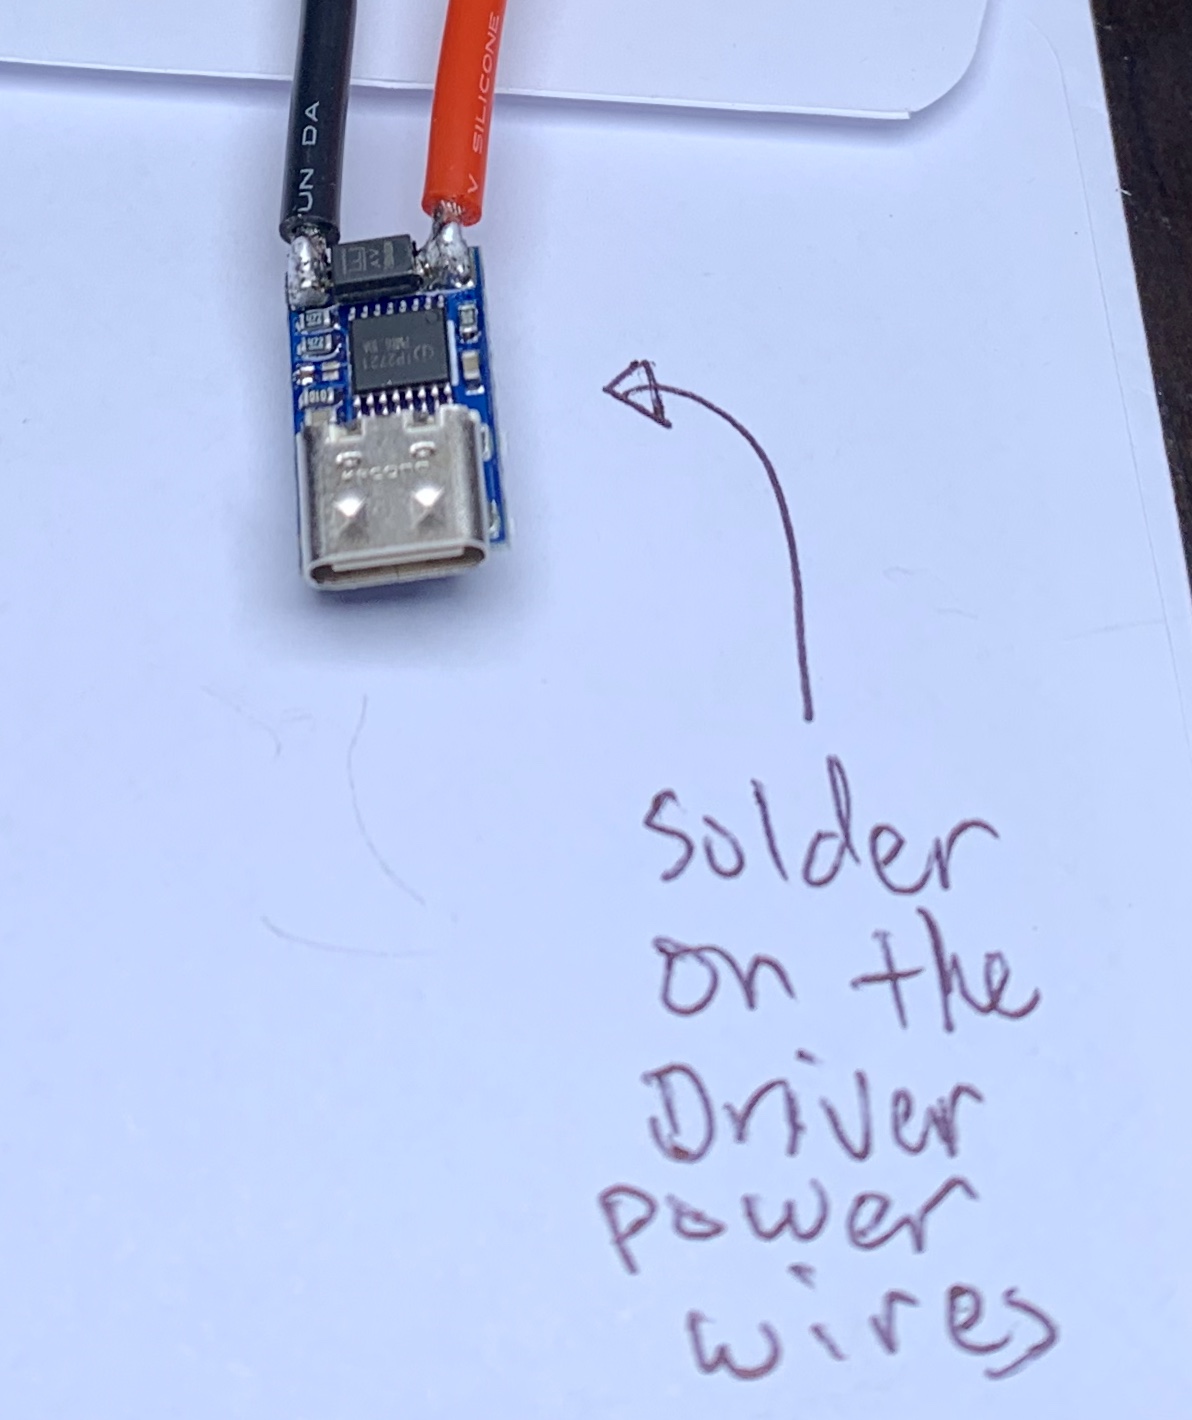 UN DA
V SILICONE
AV
922
922
IP2721
010
solder
on the
Driver
power
wires